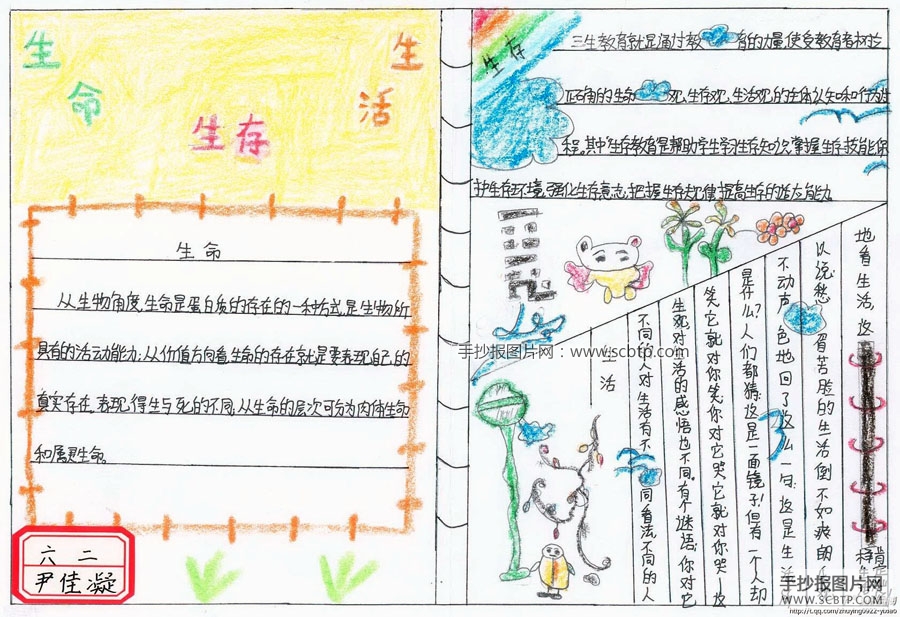 生命
生存
生活
生命
从生物角度,生命是蛋白质的存在的一种方式,是生物所
具有的活动能力,从价值方向看生命的存在就是要表现自己的
真实存在,表现得生与死的不同,从生命的层次可分为肉体生命
和属灵生命。
六二
尹佳凝
生存
三生教育就是通过教育的力量,使受教育者树立
正确的生命观、生存观、生活观的主体认知和行为
程。其中"生存教育是帮助学生学习生存知识,掌握生存技能,保
护生存环境,强化生存意志,把握生存规律,提高生存的适应能力。
生活
不同的人对生活有不同看法,不同的人
生观对生活的感悟也不同。有个谜语:你对它
笑,它就对你笑,你对它哭,它就对你哭—这
是什么?人们都猜:这是一面镜子!但有一个人却
不动声色地回了这么一句:这是生活
以统愁眉苦脸的生活倒不如爽朗
地看生活,这
手抄报图片网:www.scbtp.com
手抄报图片网
WWW.SCBTP.COM